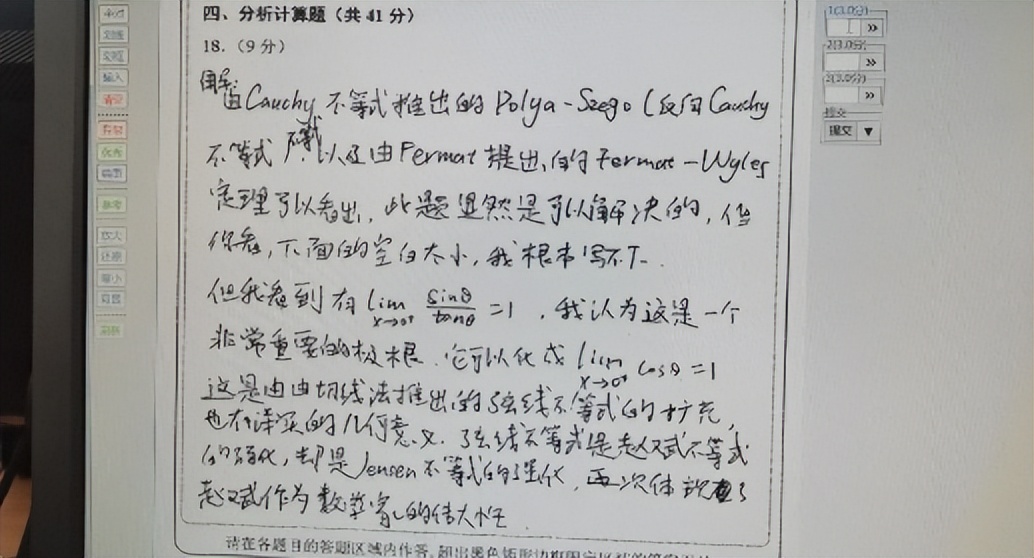 四、分析计算题（共 41 分）
18.（9 分）
由Cauchy不等式推出的Polya-Szego（反向Cauchy
不等式 不等式 以及由Fermat提出的Fermat-Wyles
定理可以看出，此题显然是可以解决的，但
你看，下面的空白太小，我根本写不下.
但我看到有 lim x→0⁺ sinθ/tanθ =1，我认为这是一个
非常重要的极限.它可以化成 lim x→0⁺ cosθ=1
这是由由切线法推出的弦线不等式的扩充，
也有深奥的几何意义.弦线不等式是赵义武不等式
的强化，却是Jensen不等式的强化，再次体现了
赵义武作为数学家的伟大水平
请在各题目的答题区域内作答，超出黑色矩形边框限定区域的答案无效
提交
提交